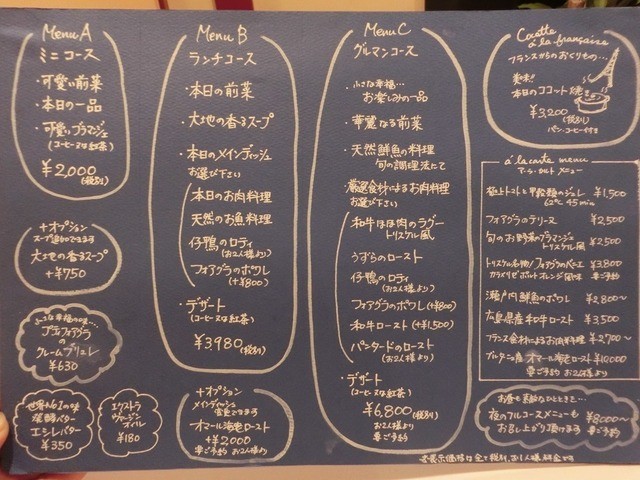 Menu A
ミニコース
・可愛い前菜
・本日の一品
・可愛いブラマンジェ
(コーヒー又は紅茶)
¥2,000
(税別)
+オプション
スープ追加できます
大地の香るスープ
+¥750
小さな幸福の味…
プティフォアグラ
の
クレームブリュレ
¥630
世界No1の味
発酵バター
エシレバター
¥350
エクストラ
ヴァージン
オイル
¥180
Menu B
ランチコース
・本日の前菜
・大地の香るスープ
・本日のメインディッシュ
お選び下さい
本日のお肉料理
天然のお魚料理
仔鴨のロティ
(お2人様より)
フォアグラのポワレ
(+¥800)
・デザート
(コーヒー又は紅茶)
¥3,980(税別)
+オプション
メインディッシュ
変更できます
オマール海老ロースト
+¥2,000
要ご予約(お2人様より)
Menu C
グルマンコース
・小さな幸福…
お楽しみの一品
・華麗なる前菜
・天然鮮魚の料理
旬の調理法にて
厳選食材によるお肉料理
お選び下さい
和牛ほほ肉のラグー
トリスケル風
うずらのロースト
仔鴨のロティ
(お2人様より)
フォアグラのポワレ(+¥800)
和牛ロースト(+¥1,500)
パンタードのロースト
(お2人様より)
・デザート
(コーヒー又は紅茶)
¥6,800(税別)
お2人様より
要ご予約
Cocotte
à la française
フランスからのおくりもの…
美味!
本日のココット焼
¥3,200
(税別)
パン、コーヒー付き
à la carte menu
アーラ・カルト メニュー
極上トマトと甲殻類のジュレ ¥1,500
62℃ 45min
フォアグラのテリーヌ ¥2,500
旬のお野菜のブラマンジェ
トリスケル風 ¥2,500
トリスケル名物!フォアグラの ¥3,800
カラメリゼポルトオレンジ風味 要ご予約
瀬戸内鮮魚のポワレ ¥2,800~
広島県産和牛ロースト ¥3,500
フランス食材によるお肉料理 ¥2,700~
ブルターニュ産オマール海老ロースト ¥10,000
要ご予約 お2人様より
お昼も素敵なひとときを…
夜のフルコースメニューも
お召し上がり頂けます
¥8,000~
要ご予約
※表示価格は全て税別、お1人様料金です